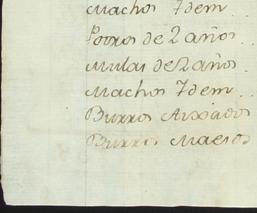 Machos Idem
Potros de 2 años
Mulas de 2 años
Machos Idem
Burros
Burros Maesos